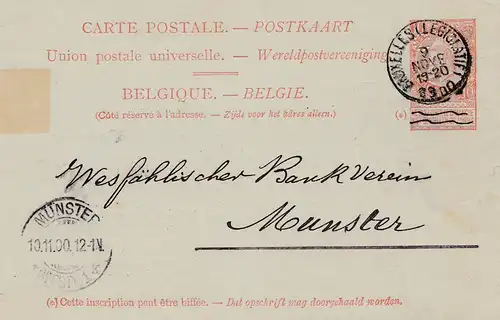 CARTE POSTALE. — POSTKAART
Union postale universelle. — Wereldpostvereeniging
BELGIQUE. — BELGIE.
(Côté réservé à l'adresse. — Zijde voor het adres alleen.)
(*)
BRUXELLES (LEGISLATIF)
9
NOVE
19-20
00
Westfählischer Bank Verein
Münster
MÜNSTER
10.11.00.12-1N.
1 *
(*) Cette inscription peut être biffée. — Dat opschrift mag doorgehaald worden.